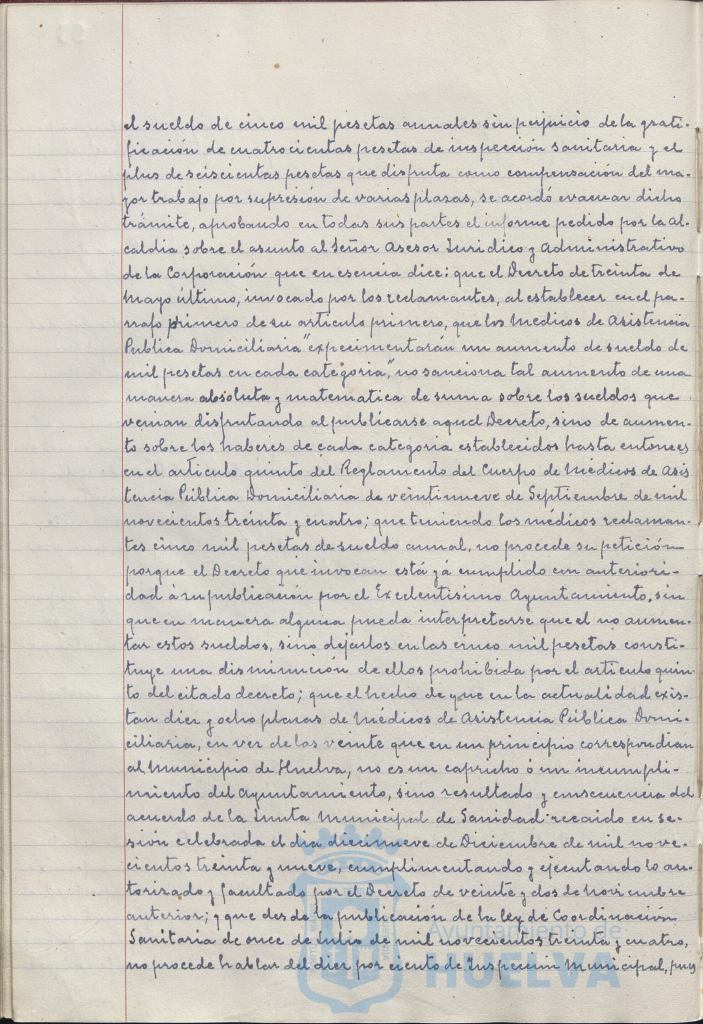 el sueldo de cinco mil pesetas anuales sin perjuicio de la grati-
ficación de cuatrocientas pesetas de inspección sanitaria y el
plus de seiscientas pesetas que disfruta como compensación del ma-
yor trabajo por supresión de varias plazas, se acordó evacuar dicho
trámite, aprobando en todas sus partes el informe pedido por la Al-
caldía sobre el asunto al Señor Asesor Jurídico y Administrativo
de la Corporación que en esencia dice: que el Decreto de treinta de
Mayo último, invocado por los reclamantes, al establecer en el pá-
rrafo primero de su artículo primero, que los Médicos de Asistencia
Pública Domiciliaria "experimentarán un aumento de sueldo de
mil pesetas en cada categoría", no sanciona tal aumento de una
manera absoluta y matemática de suma sobre los sueldos que
venían disfrutando al publicarse aquel Decreto, sino de aumen-
to sobre los haberes de cada categoría establecidos hasta entonces
en el artículo quinto del Reglamento del Cuerpo de Médicos de Asis
tencia Pública Domiciliaria de veintinueve de Septiembre de mil
novecientos treinta y cuatro; que teniendo los médicos reclaman-
tes cinco mil pesetas de sueldo anual, no procede su petición
porque el Decreto que invocan está yá cumplido con anteriori-
dad á su publicación por el Excelentísimo Ayuntamiento, sin
que en manera alguna pueda interpretarse que el no aumen-
tar estos sueldos, sino dejarlos en las cinco mil pesetas consti-
tuye una disminución de ellos prohibida por el artículo quin-
to del citado decreto; que el hecho de que en la actualidad exis-
tan diez y ocho plazas de Médicos de Asistencia Pública Domi-
ciliaria, en vez de las veinte que en un principio correspondían
al Municipio de Huelva, no es un capricho ó un incumpli-
miento del Ayuntamiento, sino resultado y consecuencia del
acuerdo de la Junta Municipal de Sanidad recaído en se-
sión celebrada el día diecinueve de Diciembre de mil nove-
cientos treinta y nueve, cumplimentando y ejecutando lo au-
torizado y facultado por el Decreto de veinte y dos de Noviembre
anterior; y que desde la publicación de la Ley de Coordinación
Sanitaria de once de Julio de mil novecientos treinta y cuatro,
no procede hablar del diez por ciento de Inspección Municipal, pues
Ayuntamiento de
HUELVA